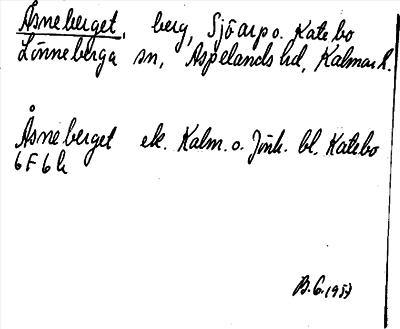 Åsneberget, berg, Sjöarp o. Katebo
Lönneberga sn, Aspelands hd, Kalmar l.
Åsneberget ek. Kalm. o. Jönk. bl. Katebo
6 F 6 h
B.G. 1957